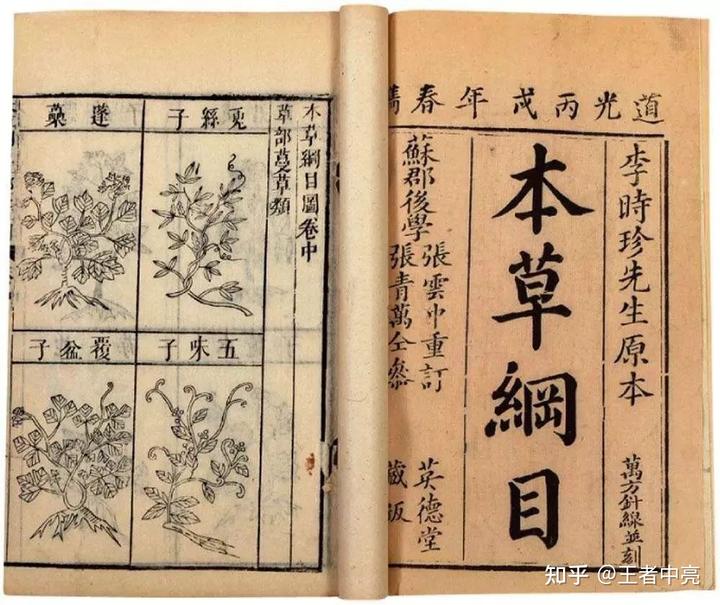 道光丙戌年春鐫
李時珍先生原本
萬方針線並刻
本草綱目
蘇郡後學
張雲中重訂
張青萬仝叅
英德堂
藏板
本草綱目圖卷中
草部蔓草類
兎絲子
蓬蘽
五味子
覆盆子
知乎 @王者中亮